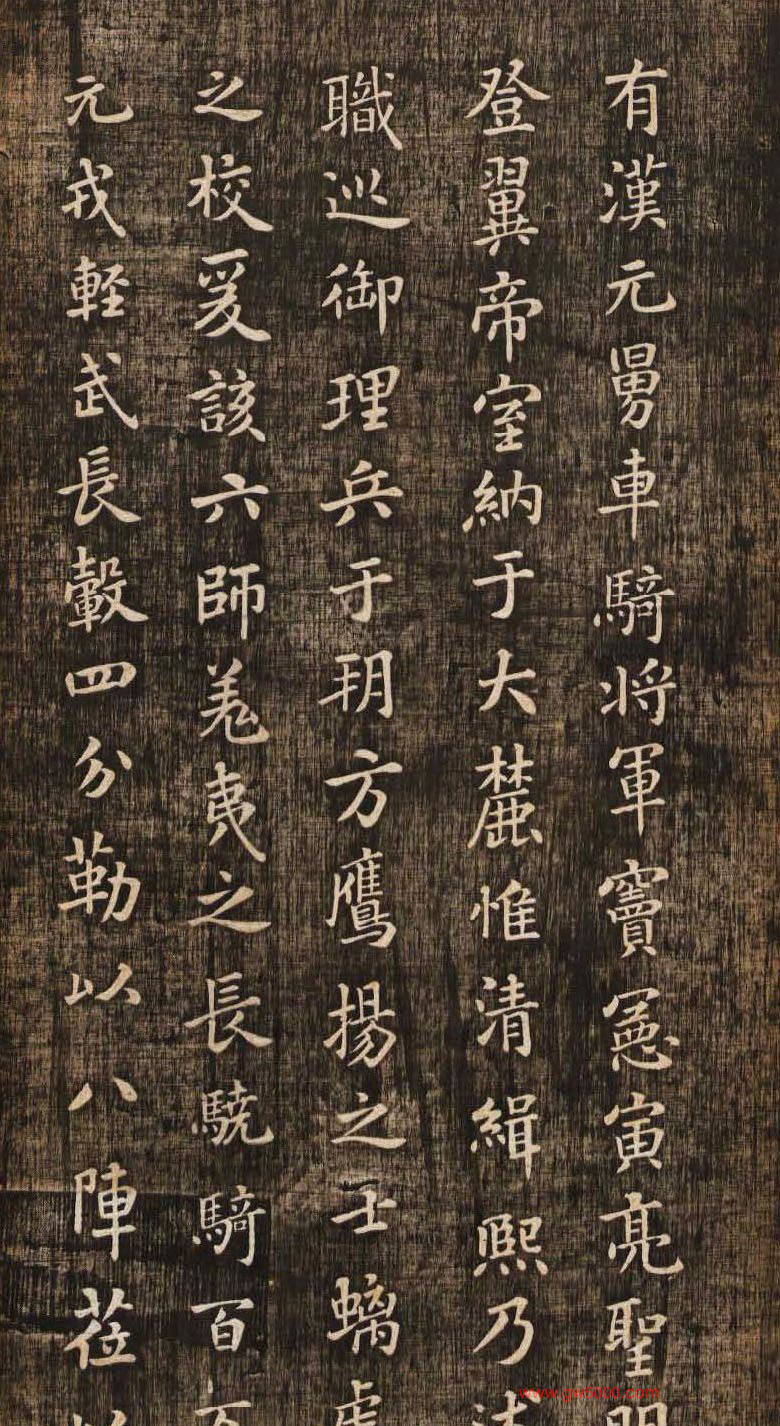 有漢元舅車騎将軍竇憲寅亮聖明
登翼帝室納于大麓惟清緝熙乃
職巡御理兵于玥方鷹揚之士螭虎
之校爰該六師羌夷之長驍騎百
元戎輕武長轂四分勒以八陣莅以
www.gwbbdd.com